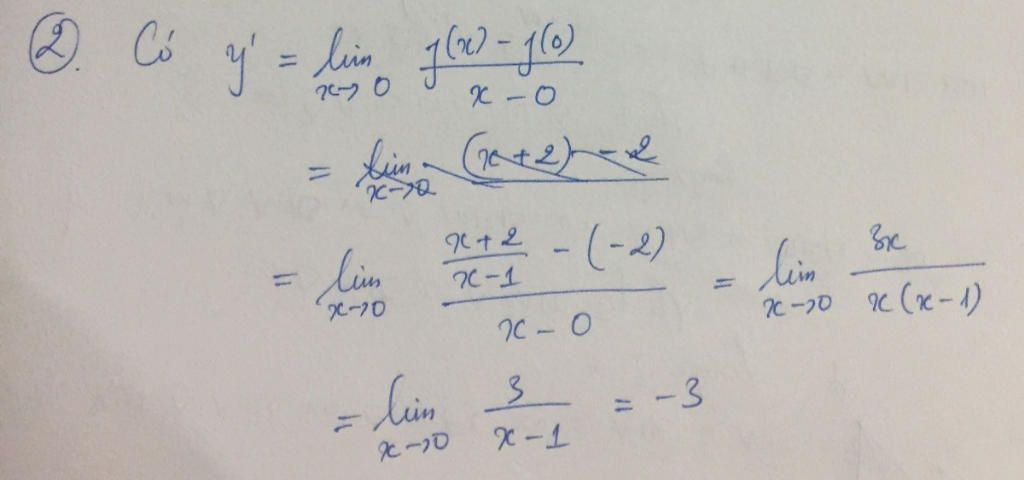 ② Có y' = lim x→0 (f(x) - f(0)) / (x - 0)
= lim x→0 (x+2) - 2
= lim x→0 ((x+2)/(x-1) - (-2)) / (x - 0) = lim x→0 3x / (x(x-1))
= lim x→0 3 / (x-1) = -3